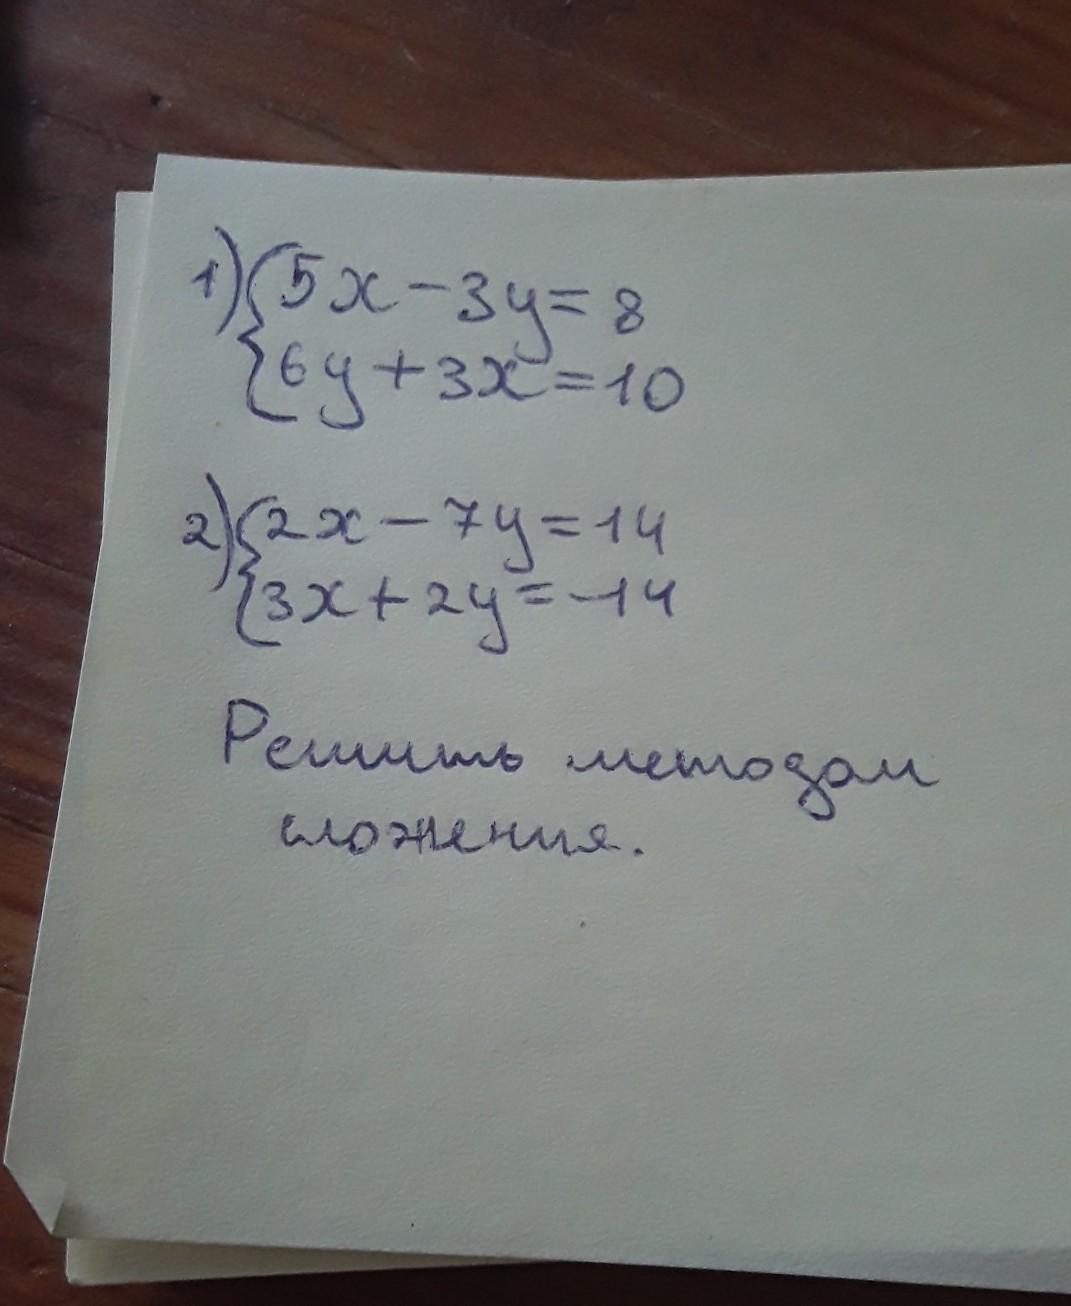 1) { 5x - 3y = 8
6y + 3x = 10
2) { 2x - 7y = 14
3x + 2y = -14
Решить методом
сложения.